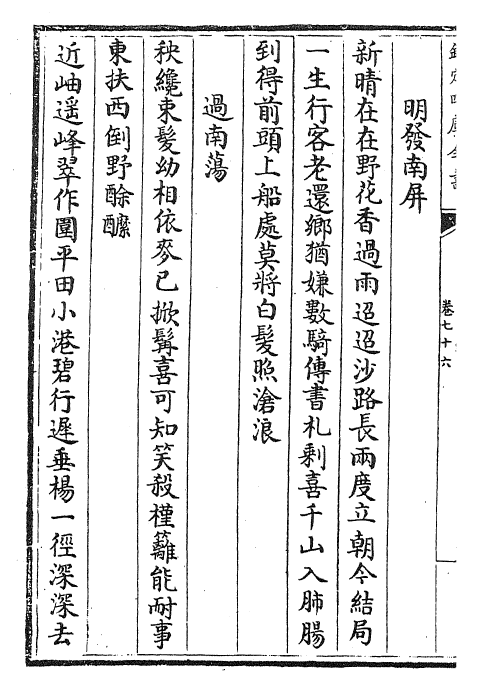 欽定四庫全書
卷七十六
明發南屏
新晴在在野花香過雨迢迢沙路長兩度立朝今結局
一生行客老還鄉猶嫌數騎傳書札剩喜千山入肺腸
到得前頭上船處莫將白髮照滄浪
過南蕩
秧纔束髮幼相依麥已掀髯喜可知笑殺槿籬能耐事
東扶西倒野酴醾
近岫遥峰翠作圍平田小港碧行遲垂楊一徑深深去